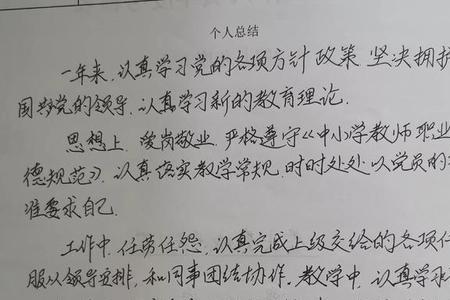 个人总结
一年来，认真学习党的各项方针政策 坚决拥护
国共党的领导，认真学习新的教育理论．
思想上，爱岗敬业，严格遵守《中小学教师职业
德规范》，认真落实教学常规，时时处处以党员的
准要求自己．
工作中，任劳任怨，认真完成上级交给的各项任
服从领导安排，和同事团结协作．教学中，认真学